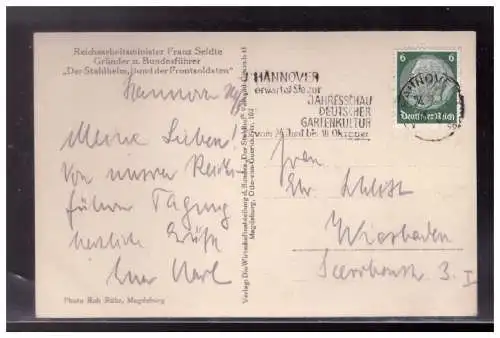 Reichsarbeitsminister Franz Seldte
Gründer u. Bundesführer
„Der Stahlhelm, Bund der Frontsoldaten"
Hannover
Meine Lieben!
Von unserer Reichs-
führer Tagung
herzliche Grüße
Euer Karl
Photo Rob Rühr, Magdeburg
Verlag: Die Wirtschaftsabteilung d. Bundes „Der Stahlhelm"
Magdeburg, Otto-von-Guericke-Str.
HANNOVER
erwartet Sie zur
JAHRESSCHAU
DEUTSCHER
GARTENKULTUR
vom 24. Juni bis 18. Oktober
6 6
Deutsches Reich
Wiesbaden
3. I